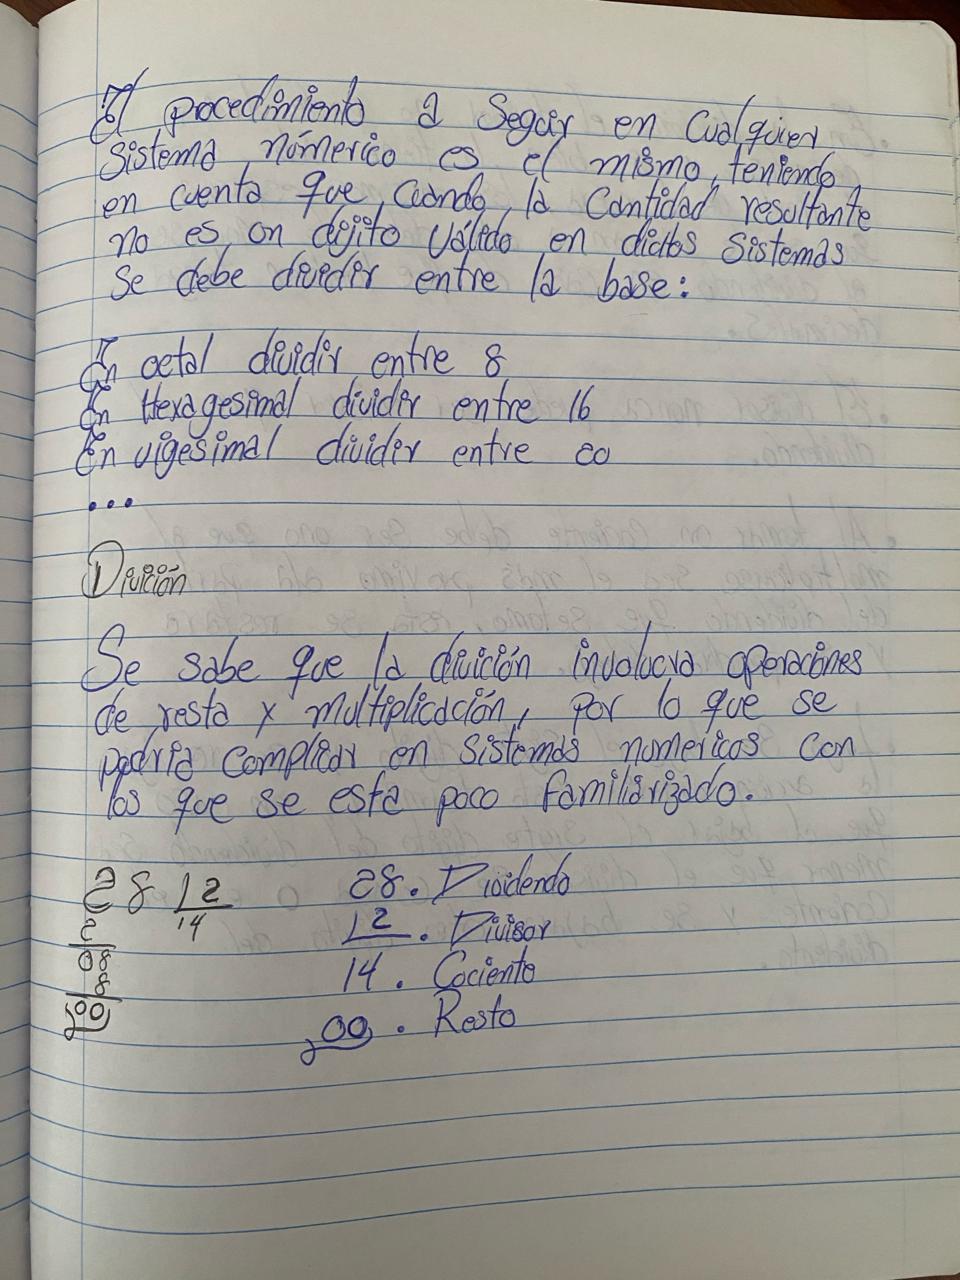 El procedimiento a Seguir en Cualquier
Sistema númerico es el mismo, teniendo
en cuenta que, cuando, la Cantidad resultante
no es, un dijito Válido en dichos Sistemas
Se debe dividir entre la base:
En octal dividir entre 8
En Hexagesimal dividir entre 16
En vigesimal dividir entre 20
...
Divición
Se sabe que la divición involucra operaciones
de resta y multiplicación, por lo que se
podria complicar en Sistemas numericos Con
los que se esta poco familiarizado.
28 2 28. Dividendo
14 2. Divisor
2
08 14. Cociente
8
00 00. Resto